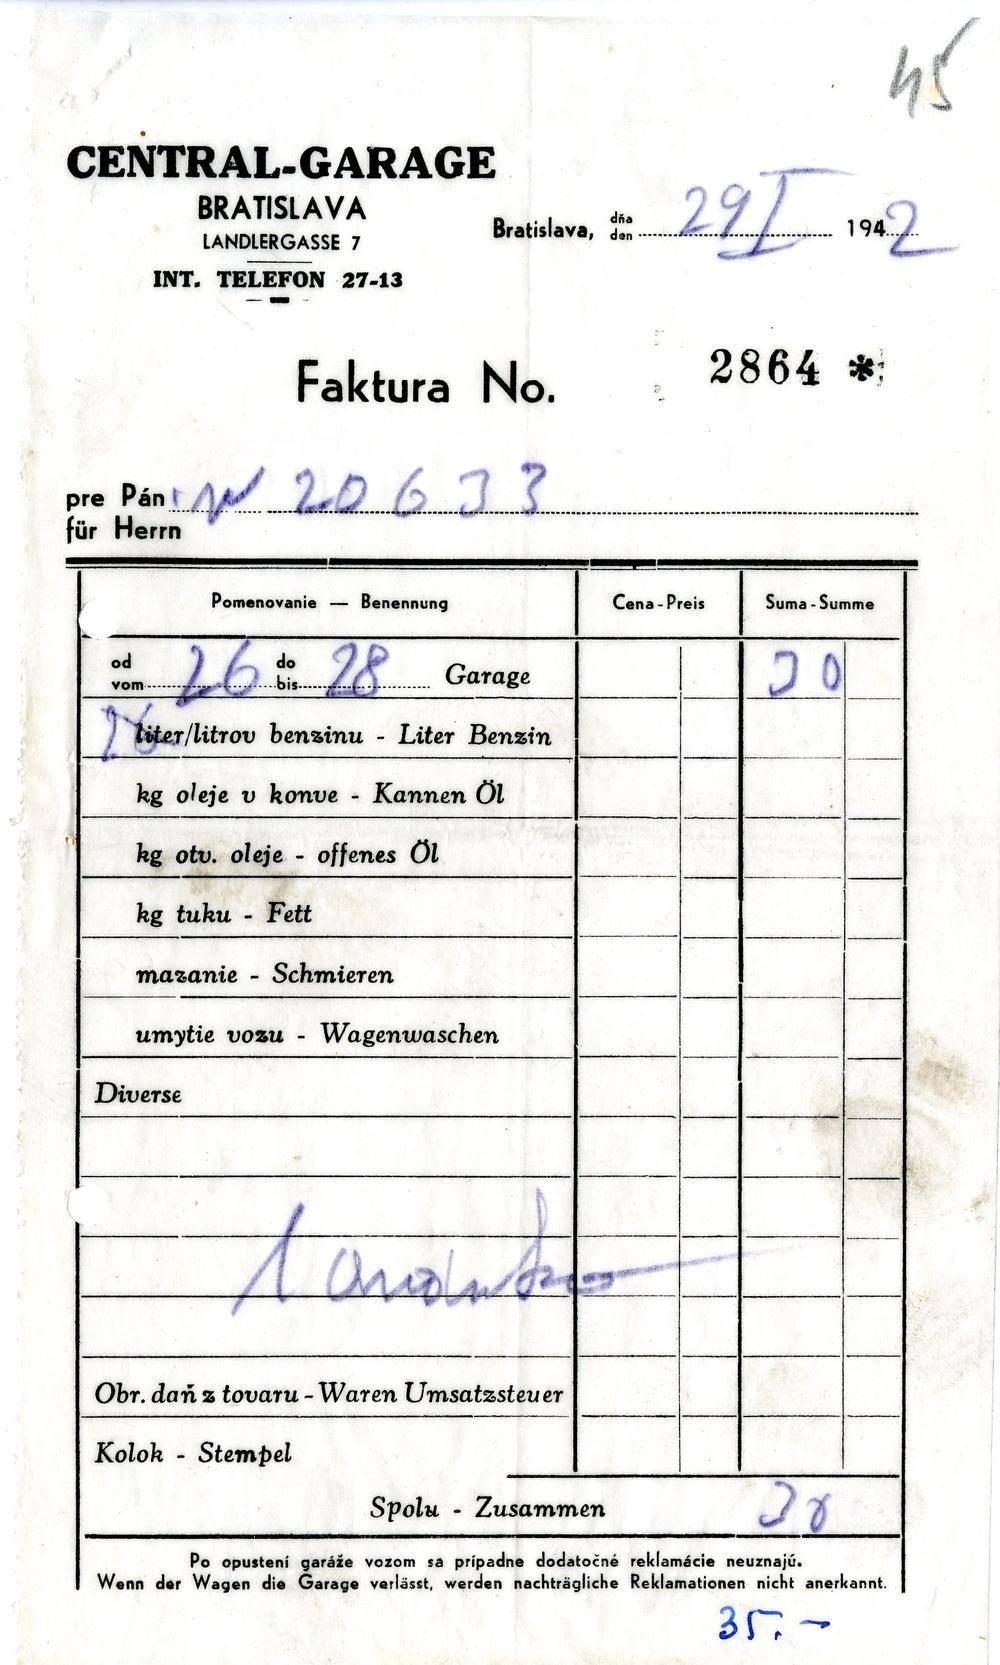 45
CENTRAL-GARAGE
BRATISLAVA
LANDLERGASSE 7
INT. TELEFON 27-13
Bratislava, dňa den 29 I 1942
Faktura No. 2864 *
pre Pán 20633
für Herrn
Pomenovanie — Benennung Cena-Preis Suma-Summe
od vom 26 do bis 28 Garage 30
liter/litrov benzinu - Liter Benzin
kg oleje v konve - Kannen Öl
kg otv. oleje - offenes Öl
kg tuku - Fett
mazanie - Schmieren
umytie vozu - Wagenwaschen
Diverse
Obr. daň z tovaru - Waren Umsatzsteuer
Kolok - Stempel
Spolu - Zusammen 30
Po opustení garáže vozom sa prípadne dodatočné reklamácie neuznajú.
Wenn der Wagen die Garage verlässt, werden nachträgliche Reklamationen nicht anerkannt.
35.-